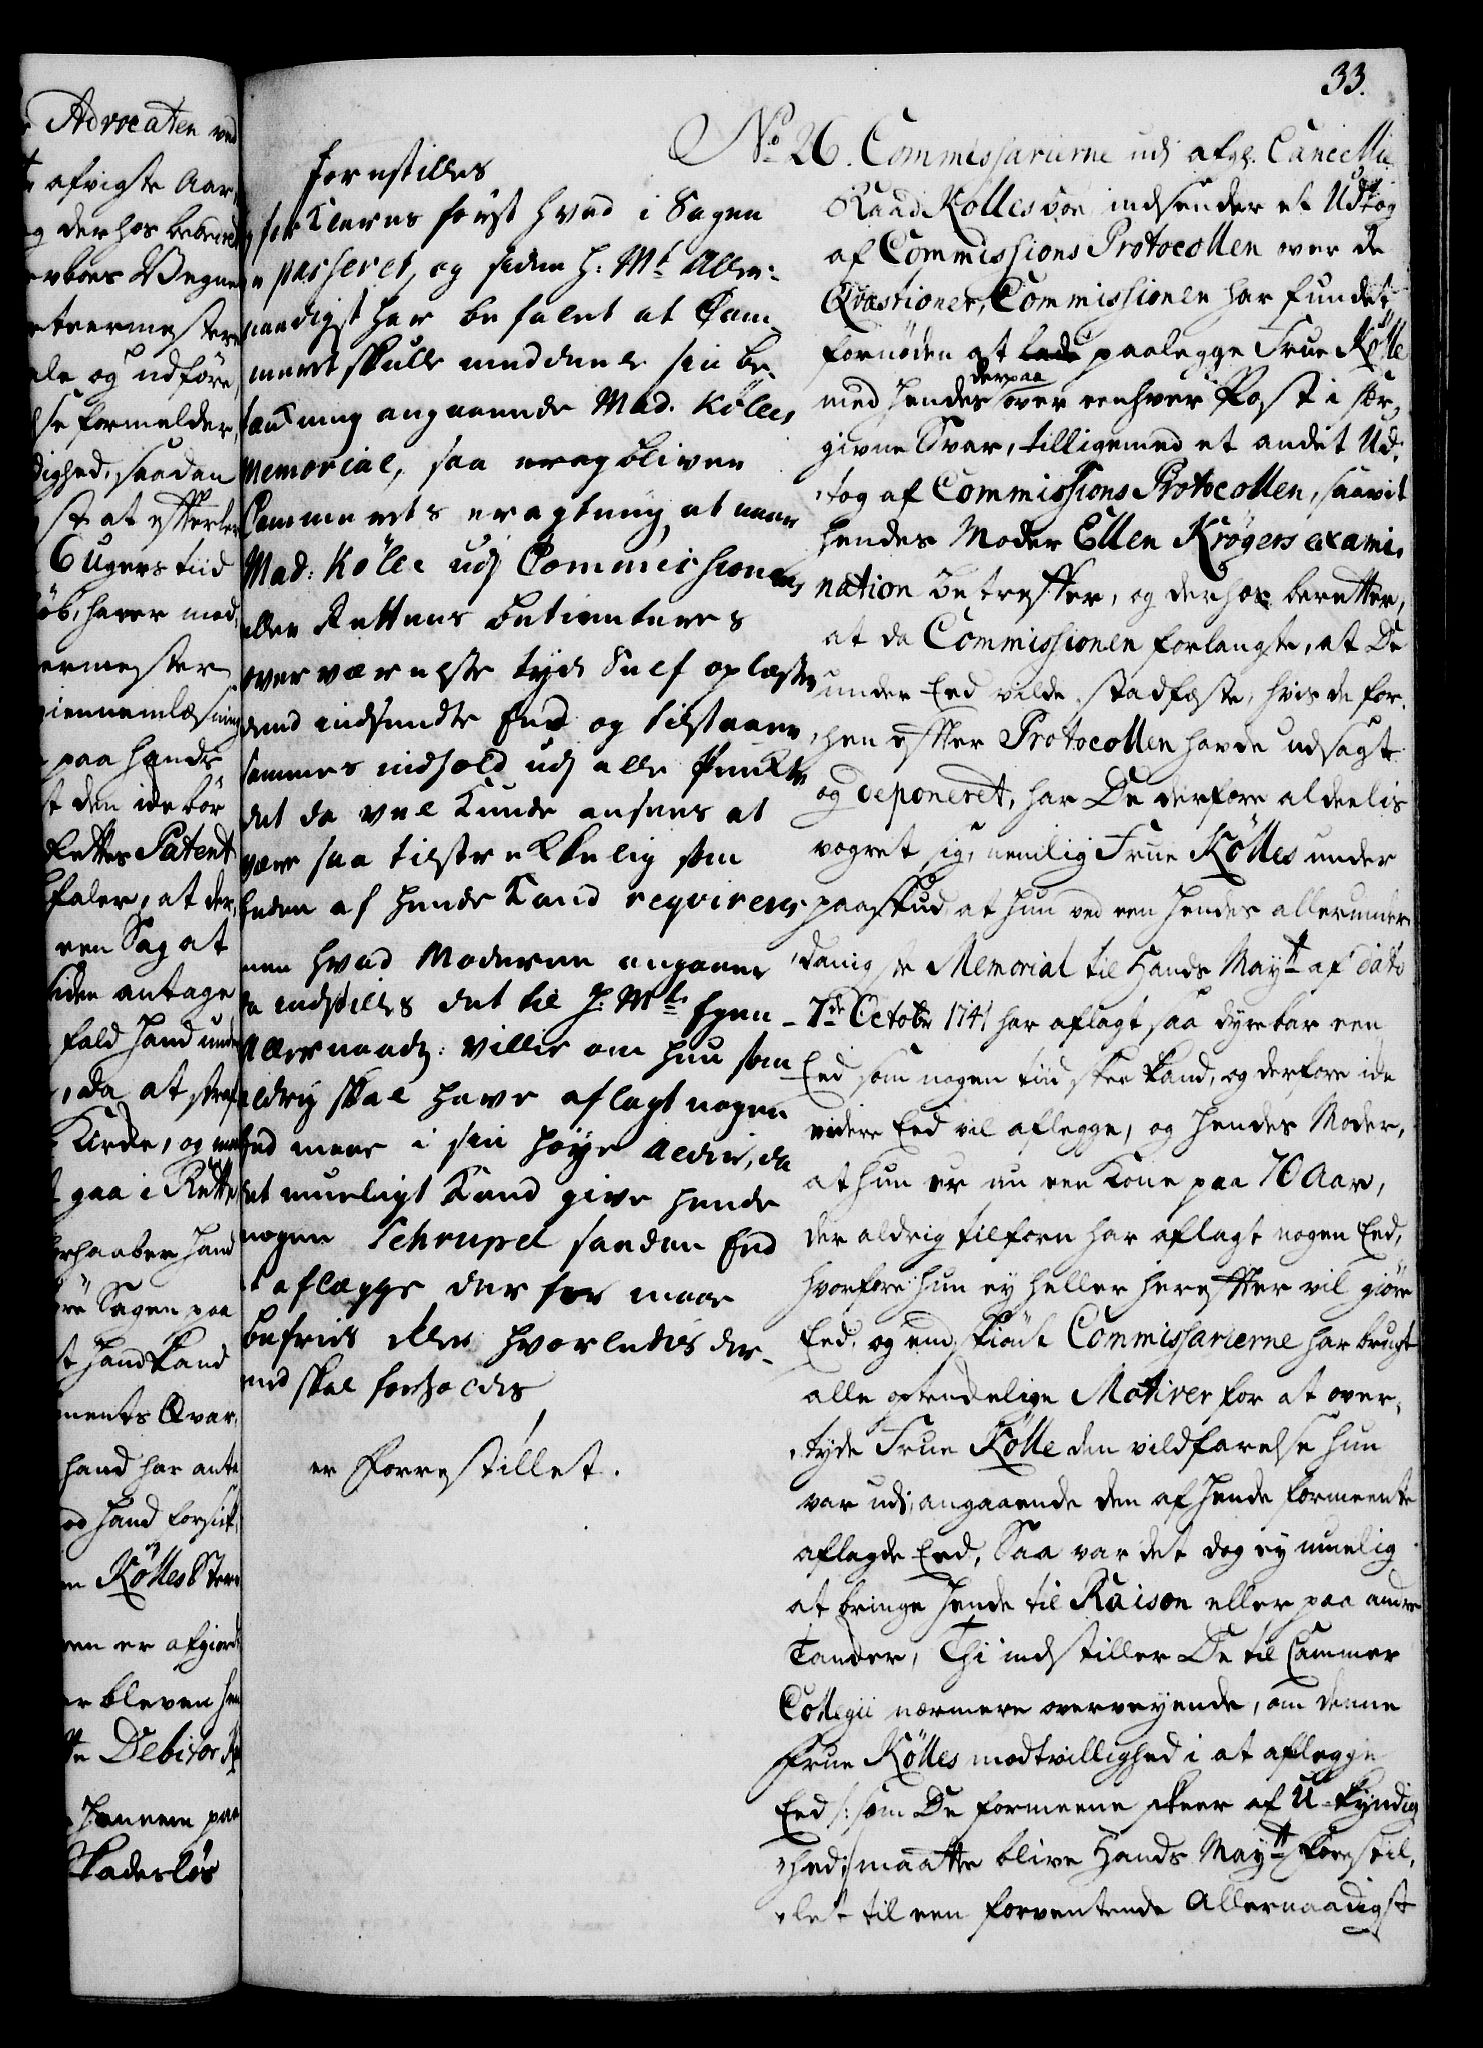 33.
Advocaten ved
afvigte Aar
og derhos
Vegne
og udføre
formelder,
saadan
at efter
6 Ugers tiid
haver med
paa hands
den icke bør
Rettes Patent
at der
een Sag at
siden antage
fald Hand
da at
og
gaa i Rette
forhaaber Hand
Sagen paa
Hand kand
hand har
Hand
Kølles
er afgiort
er bleven
Debitor
paa
skadesløs
forestilles
forklares først hvad i Sagen
passeret, og siden H: Mt. Aller-
naadigst har befalet at Cam-
meret skulle meddeele sin be-
tænkning angaaende Mad. Kølles
Memorial, saa er
Cammerets eragtning, at naar
Mad: Kølle udj Commissionens
eller Rettens betienteres
overværelse tydl. Self oplæste
dend indsendte Eed og tilstaar
sammes indhold udj alle Puncter
det da vel kunde ansees at
være saa tilstrekkelig som
Eeden af hende kand reqvireres
men hvad Moderen angaaer
da indstilles det til H: Mts. Egen
Allernaadt: villie om hun som
aldrig skal have aflagt nogen
Eed maae i sin høye Alder, da
det mueligt kand give hende
nogen Schrupel saadan Eed
at aflægge derfor maae
befries eller hvorledis der-
med skal forholdes
er Forrestillet.
No. 26. Commissarierne udj afgl. Cancellie
Raad Kølles boe indsender et Udtog
af Commissions Protocollen over de
Qvæstioner, Commissionen har fundet
fornøden at lade paalegge Frue Kølle
med hendes derpaa over eenhver Post i sær
givne Svar, tilligemed et andet Ud-
tog af Commissions Protocollen, saavit
hendes Moder Ellen Krøgers exami-
nation betreffer, og derhos beretter,
at da Commissionen forlangte, at De
under Eed vilde stadfæste, hvis de for-
hen efter Protocollen havde udsagt
og deponeret, har De derfore aldeelis
vegret sig, nemlig Frue Kølles under
paaskud at hun ved een hendes allerunder
danigste Memorial til Hands Maytt af dato
7de Octobr 1741 har aflagt saa dyrebar een
Eed som nogen tiid skee kand, og derfore icke
videre Eed vil aflegge, og hendes Moder,
at hun er nu een Kone paa 70 Aar,
der aldrig tilforn har aflagt nogen Eed,
hvorfore hun ey heller herefter vil giøre
Eed, og endskiønt Commissarierne har brugt
alle optenckelige Motiver for at over-
tyde Frue Kølle den vildfarelse hun
var udi, angaaende den af hende formeente
aflagde Eed, Saa var det dog ey muelig
at bringe hende til Raison eller paa andre
Tancker, Thi indstiller De til Cammer
Collegii nærmere overveyende, om denne
Frue Kølles modtvillighed i at aflegge
Eed /: som De formeene skeer af U-kyndig
hed :/ maatte blive Hands Maytt Forestil-
let til een forventende Allernaadigst